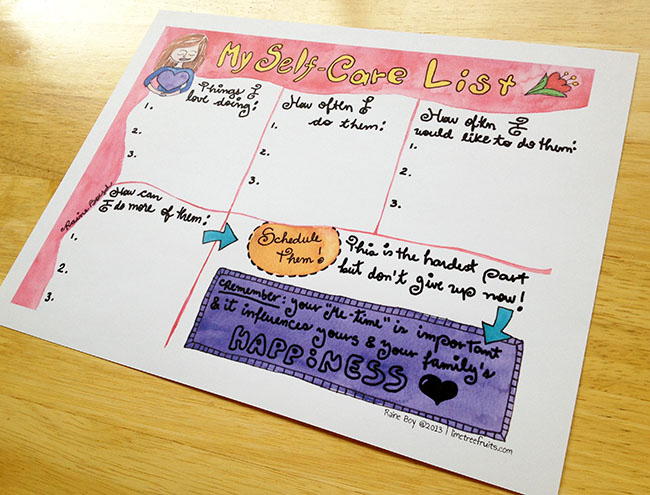 My Self-Care List
Things I
love doing:
1.
2.
3.
How often I
do them:
1.
2.
3.
How often I
would like to do them:
1.
2.
3.
How can
I do more of them:
1.
2.
3.
Schedule
Them!
This is the hardest part
but don't give up now!
Remember: your "Me-time" is important
& it influences yours & your family's
HAPPiNESS
Raine Boy ©2013 | limetreefruits.com